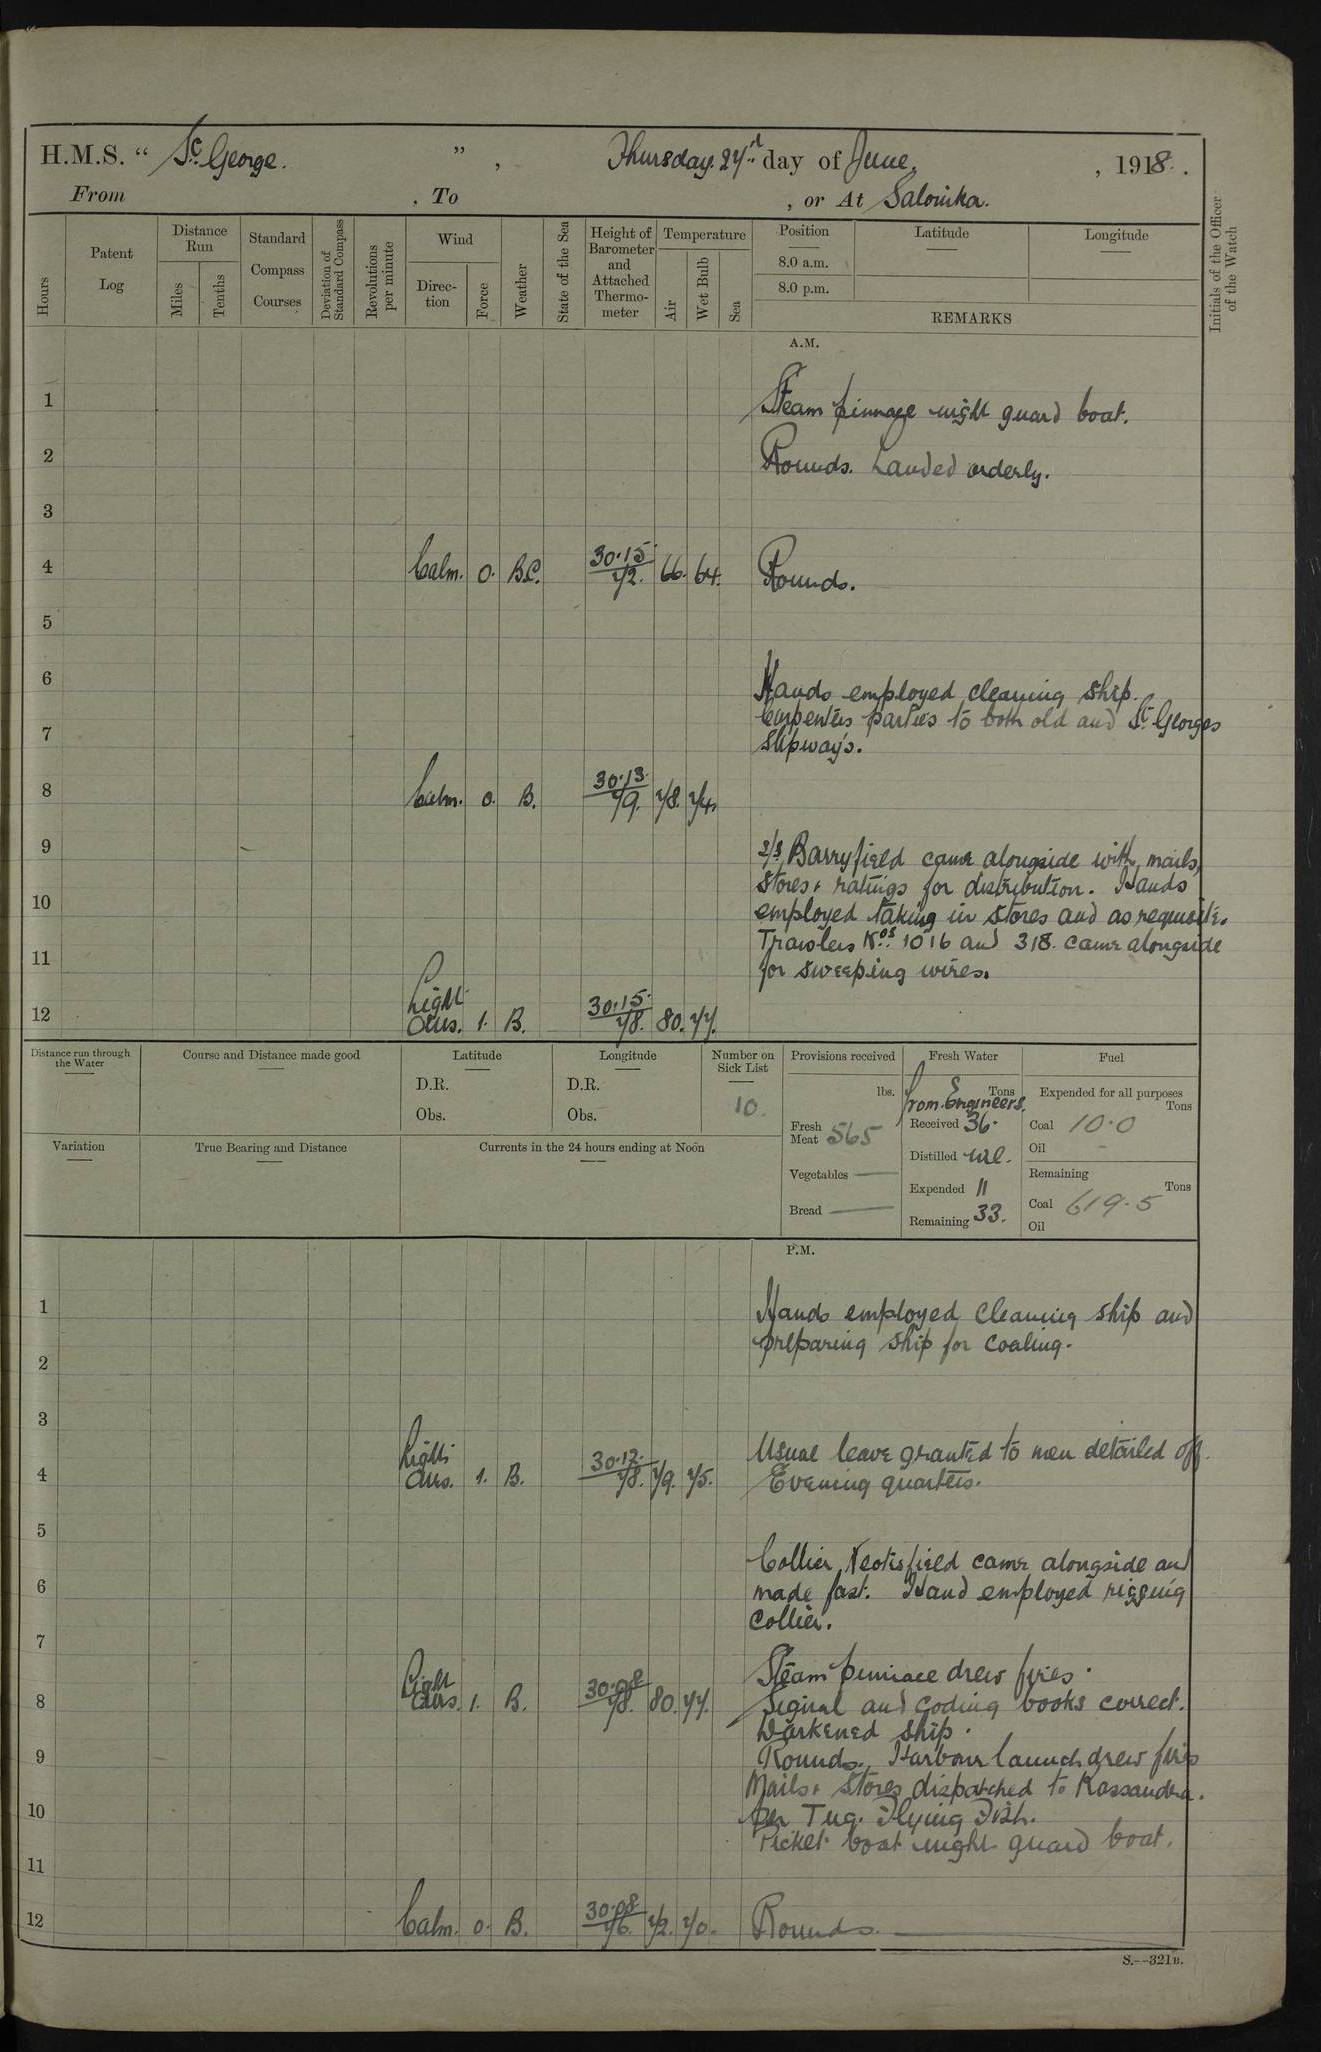 H.M.S. “ St. George. ” , Thursday. 27th day of June, , 1918.
From , To , or At Salonika.
Hours
Patent Log
Distance Run
Miles
Tenths
Standard Compass Courses
Deviation of Standard Compass
Revolutions per minute
Wind
Direction
Force
Weather
State of the Sea
Height of Barometer and Attached Thermometer
Temperature
Air
Wet Bulb
Sea
Position
8.0 a.m.
8.0 p.m.
Latitude
Longitude
REMARKS
Initials of the Officer of the Watch
A.M.
1 Steam pinnace night guard boat.
2 Rounds. Landed orderly.
3
4 Calm. 0. B.C. 30.15 72. 66. 64. Rounds.
5
6 Hands employed cleaning ship.
Carpenters parties to both old and St Georges
7 slipways.
8 Calm. 0. B. 30.13. 79. 78. 74.
9 S/S Barryfield came alongside with mails,
stores + ratings for distribution. Hands
10 employed taking in stores and as requisite.
Trawlers Nos. 1016 and 318. came alongside
11 for sweeping wires.
12 Light airs. 1. B. 30.15. 78. 80. 77.
Distance run through the Water
Course and Distance made good
Latitude
D.R.
Obs.
Longitude
D.R.
Obs.
Number on Sick List
10.
Provisions received
lbs.
Fresh Meat 565
Vegetables —
Bread —
Fresh Water
Tons
from Engineers.
Received 36.
Distilled nil.
Expended 11
Remaining 33.
Fuel
Expended for all purposes
Tons
Coal 10.0
Oil -
Remaining
Tons
Coal 619.5
Oil
Variation
True Bearing and Distance
Currents in the 24 hours ending at Noon
P.M.
1 Hands employed cleaning ship and
preparing ship for coaling.
2
3
Usual leave granted to men detailed off.
4 Light airs. 1. B. 30.12. 78. 79. 75. Evening quarters.
5
Collier Neotsfield came alongside and
6 made fast. Hand employed rigging
collier.
7
Steam pinnace drew fires.
8 Light airs. 1. B. 30.08 78. 80. 77. Signal and coding books correct.
Darkened ship.
9 Rounds. Harbour launch drew fires
Mails + stores dispatched to Kassandra.
10 per Tug. Flying Fish.
Picket boat night guard boat.
11
12 Calm. 0. B. 30.08. 76. 72. 70. Rounds.
S.—321B.